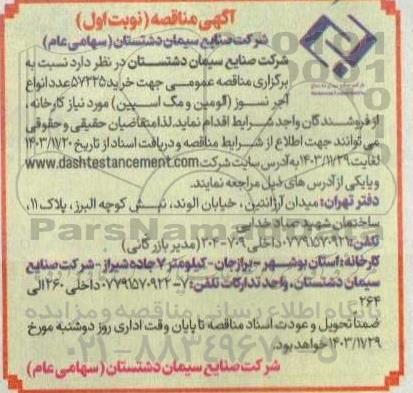 آگهی مناقصه (نوبت اول)
شرکت صنایع سیمان دشتستان (سهامی عام)
شرکت صنایع سیمان دشتستان در نظر دارد نسبت به
برگزاری مناقصه عمومی جهت خرید ۵۷۲۲۵ عدد انواع
آجر نسوز (آلومین و مگ اسپین) مورد نیاز کارخانه ،
از فروشندگان واجد شرایط اقدام نماید. لذا متقاضیان حقیقی و حقوقی
می توانند جهت اطلاع از شرایط مناقصه و دریافت اسناد از تاریخ ۱۴۰۳/۱۱/۲۰
لغایت ۱۴۰۳/۱۱/۲۹ به آدرس سایت شرکت www.dashtestancement.com
و یا یکی از آدرس های ذیل مراجعه نمایند.
دفتر تهران: میدان آرژانتین ، خیابان الوند، نبش کوچه البرز ، پلاک ۱۱،
ساختمان شهید صیاد خدایی
تلفن: ۰۷۷۹۱۵۷۰۹۲۱ داخلی ۷۰۹ - ۲۰۴ (مدیر بازرگانی)
کارخانه: استان بوشهر - برازجان - کیلومتر ۷ جاده شیراز - شرکت صنایع
سیمان دشتستان، واحد تدارکات تلفن: ۷-۰۷۷۹۱۵۷۰۹۲۲ داخلی ۲۶۰ الی
۲۶۴
ضمنا تحویل و عودت اسناد مناقصه تا پایان وقت اداری روز دوشنبه مورخ
۱۴۰۳/۱۱/۲۹ خواهد بود.
شرکت صنایع سیمان دشتستان (سهامی عام)
پایگاه اطلاع رسانی مناقصه و مزایده
۰۲۱-۸۸۳۴۹۶۷۰-۵